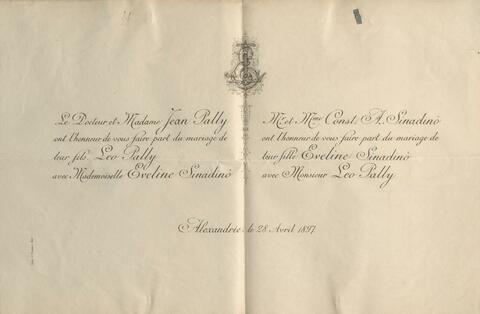 Le Docteur et Madame Jean Pally
ont l'honneur de vous faire part du mariage de
leur fils Leo Pally
avec Mademoiselle Eveline Sinadinò
Mr et Mme Const. A. Sinadinò
ont l'honneur de vous faire part du mariage de
leur fille Eveline Sinadinò
avec Monsieur Leo Pally
Alexandrie le 28 Avril 1897